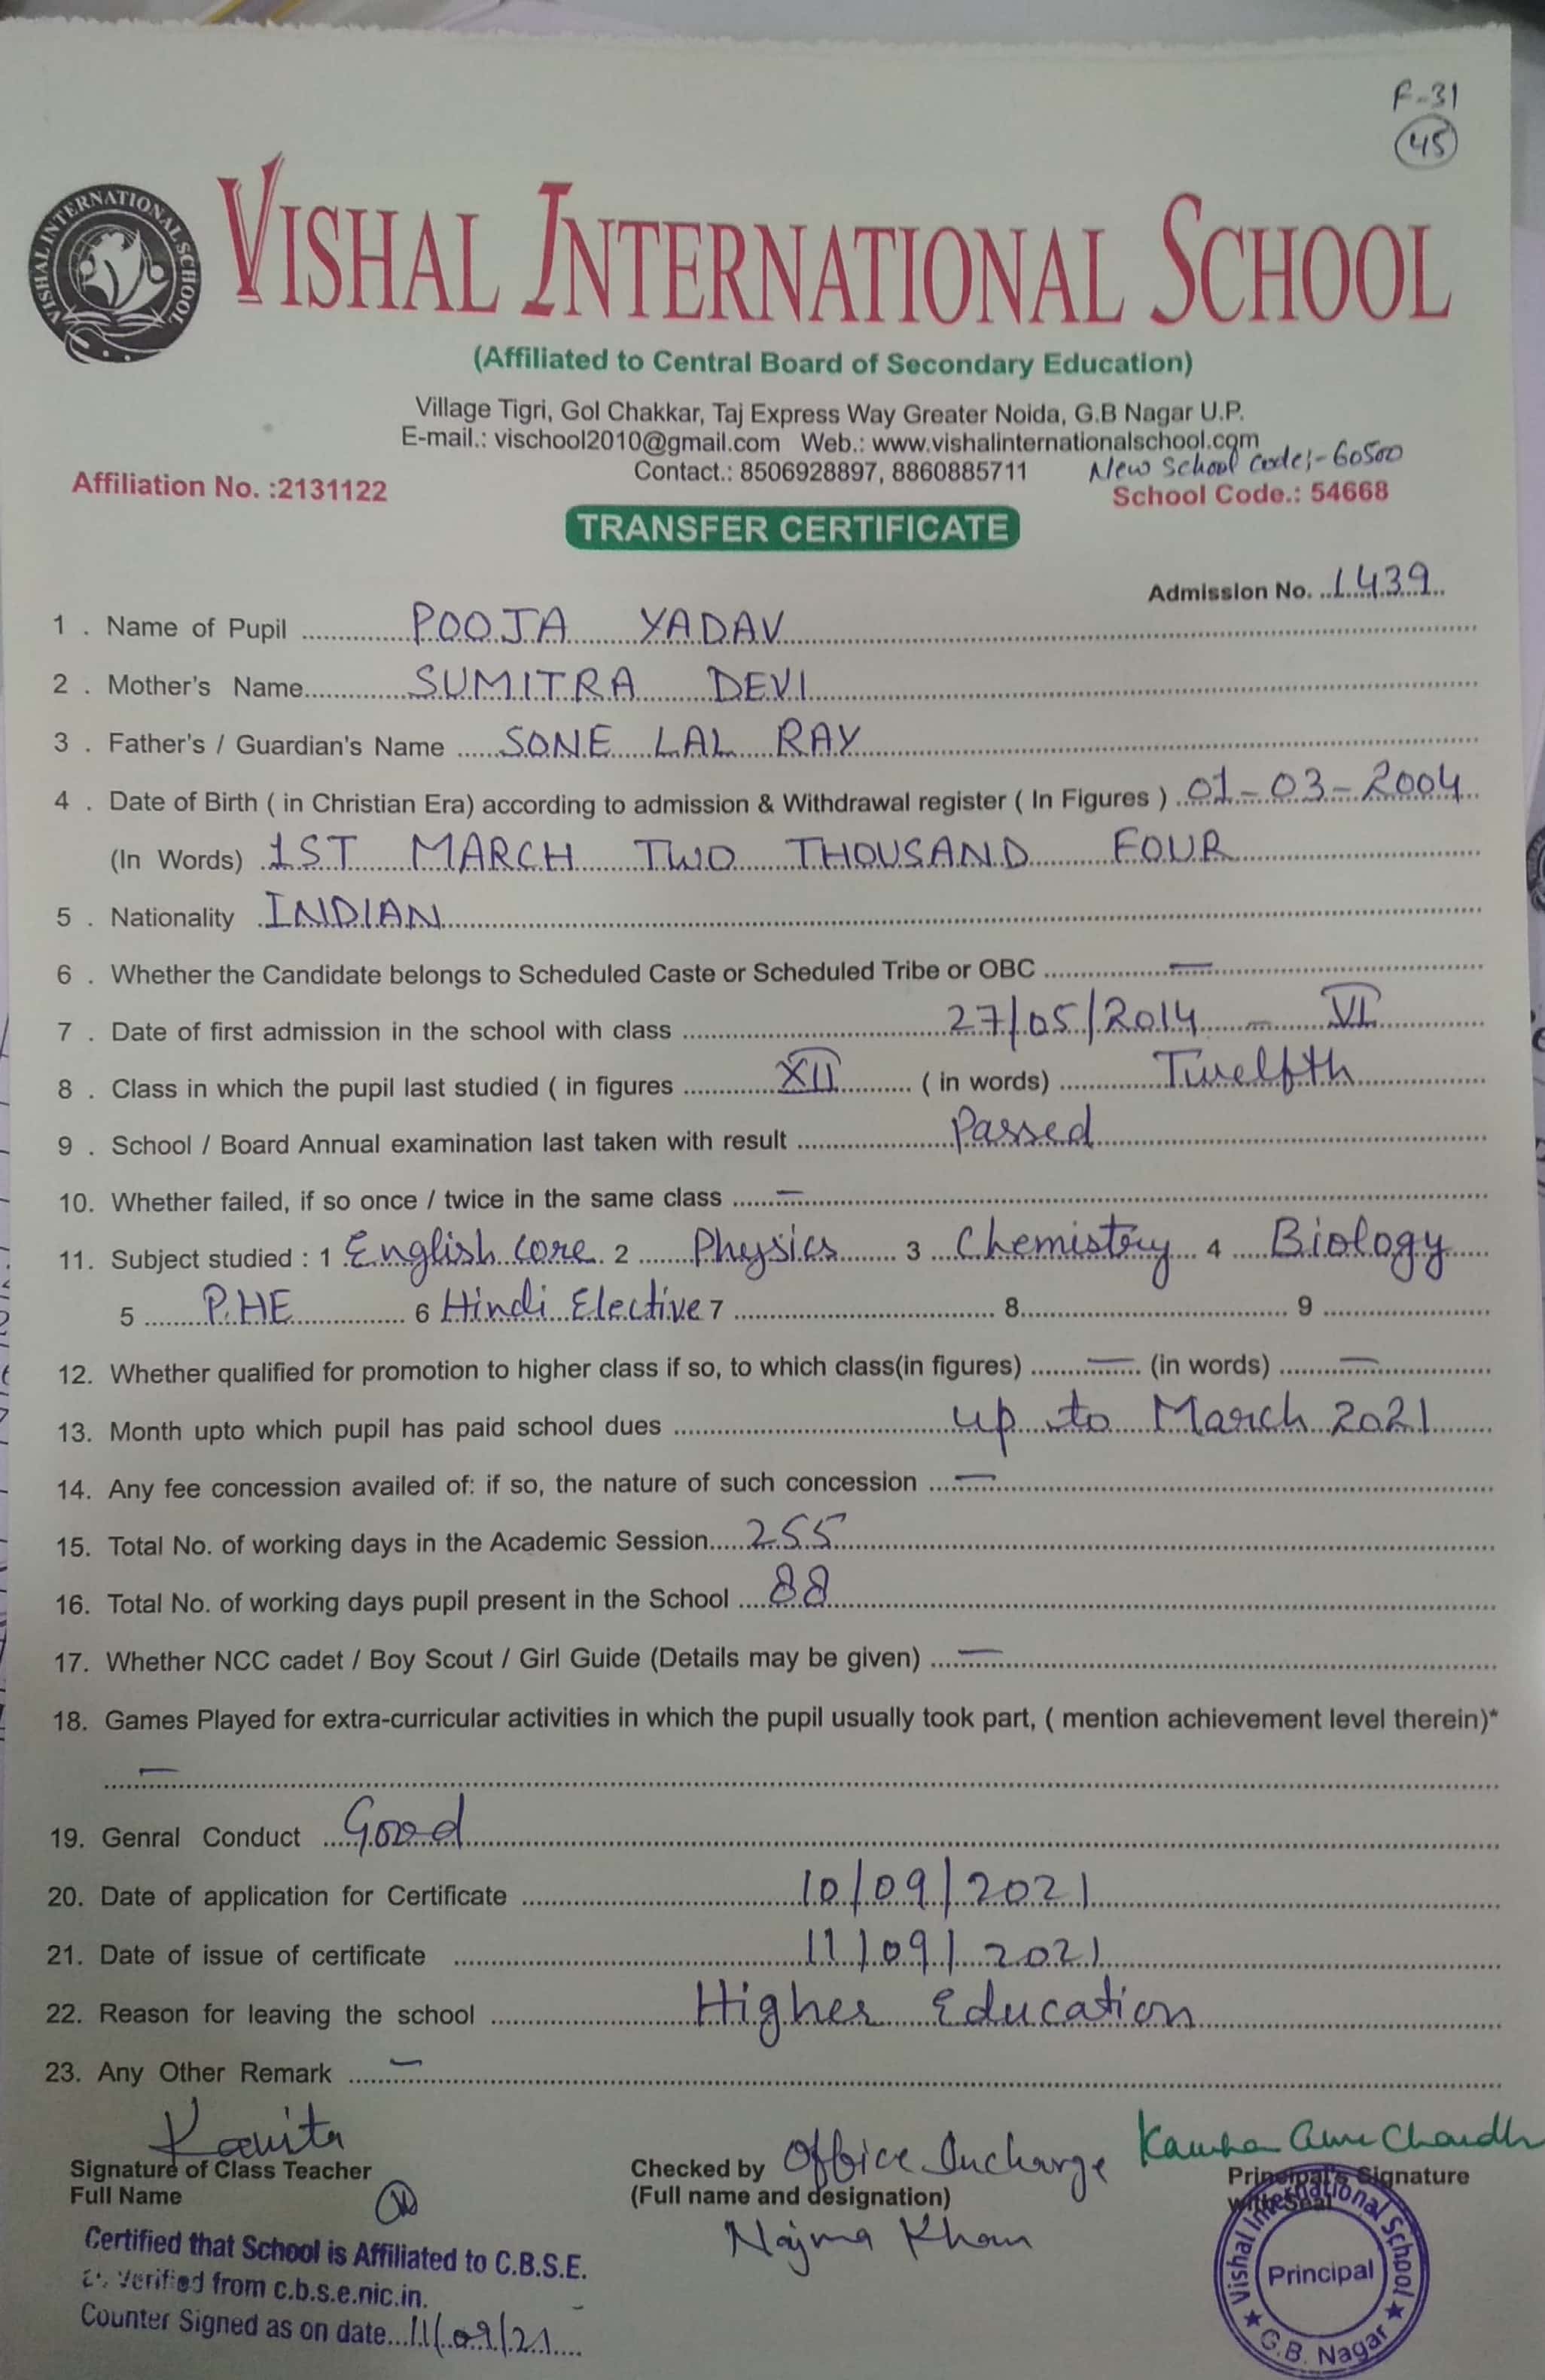 F-31
45
VISHAL INTERNATIONAL SCHOOL
VISHAL INTERNATIONAL SCHOOL
(Affiliated to Central Board of Secondary Education)
Village Tigri, Gol Chakkar, Taj Express Way Greater Noida, G.B Nagar U.P.
E-mail.: vischool2010@gmail.com Web.: www.vishalinternationalschool.com
Contact.: 8506928897, 8860885711 New School Code:- 60500
Affiliation No. :2131122 School Code.: 54668
TRANSFER CERTIFICATE
Admission No. 1439
1 . Name of Pupil POOJA YADAV
2 . Mother's Name SUMITRA DEVI
3 . Father's / Guardian's Name SONE LAL RAY
4 . Date of Birth ( in Christian Era) according to admission & Withdrawal register ( In Figures ) 01-03-2004
(In Words) 1ST MARCH TWO THOUSAND FOUR
5 . Nationality INDIAN
6 . Whether the Candidate belongs to Scheduled Caste or Scheduled Tribe or OBC —
7 . Date of first admission in the school with class 27/05/2014 - VI
8 . Class in which the pupil last studied ( in figures XII ( in words) Twelfth
9 . School / Board Annual examination last taken with result Passed
10. Whether failed, if so once / twice in the same class —
11. Subject studied : 1 English core 2 Physics 3 Chemistry 4 Biology
5 P.HE 6 Hindi Elective 7 8 9
12. Whether qualified for promotion to higher class if so, to which class(in figures) — (in words) —
13. Month upto which pupil has paid school dues up to March 2021
14. Any fee concession availed of: if so, the nature of such concession —
15. Total No. of working days in the Academic Session 255
16. Total No. of working days pupil present in the School 88
17. Whether NCC cadet / Boy Scout / Girl Guide (Details may be given) —
18. Games Played for extra-curricular activities in which the pupil usually took part, ( mention achievement level therein)*
—
19. Genral Conduct Good
20. Date of application for Certificate 10/09/2021
21. Date of issue of certificate 11/09/2021
22. Reason for leaving the school Higher Education
23. Any Other Remark —
Kavita
Signature of Class Teacher Checked by Office Incharge Principal's Signature
Full Name (Full name and designation) with Seal
Najma Khan
Certified that School is Affiliated to C.B.S.E.
Verified from c.b.s.e.nic.in.
Counter Signed as on date 11/09/21
Vishal International School
Principal
★ G.B. Nagar ★